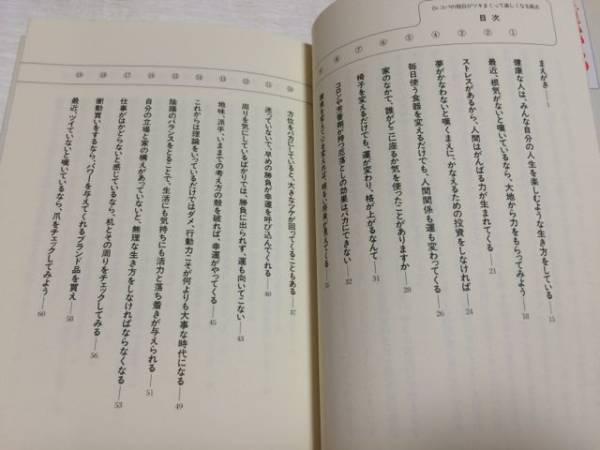 Dr.コパの毎日がツキまくって楽しくなる風水
目次
まえがき——1
① 健康な人は、みんな自分の人生を楽しむような生き方をしている——15
② 最近、根気がないと嘆いているなら、大地から力をもらってみよう——18
③ ストレスがあるから、人間はがんばる力が生まれてくる——21
④ 夢がかなわないと嘆くまえに、かなえるための投資をしなければ——24
⑤ 毎日使う食器を変えるだけでも、人間関係も運も変わってくる——26
⑥ 家のなかで、誰がどこに座るか気を使ったことがありますか——28
⑦ 椅子を変えるだけでも、運が変わり、格が上がるなんて——31
⑧ コロンや香水が持つ厄落としの効果はバカにできない——32
⑩ 方位をバカにしていると、大きなツケが回ってくることもある——37
迷っていないで、早めの勝負が幸運を呼び込んでくれる——40
周りを気にしているばかりでは、勝負に出られず、運も向いてこない——43
地味、派手、いままでの考え方の殻を破れば、幸運がやってくる——45
これからは理論をいっているだけではダメ、行動力こそが何よりも大事な時代になる——49
陰陽のバランスをとることで、生活にも気持ちにも活力と落ち着きが与えられる——51
自分の立場と家の構えがあっていないと、無理な生き方をしなければならなくなる——53
仕事がはかどらないと感じているなら、机とその周りをチェックしてみる——56
衝動買いをするなら、パワーを与えてくれるブランド品を買え——58
最近、ツイていないと嘆いているなら、爪をチェックしてみよう——60